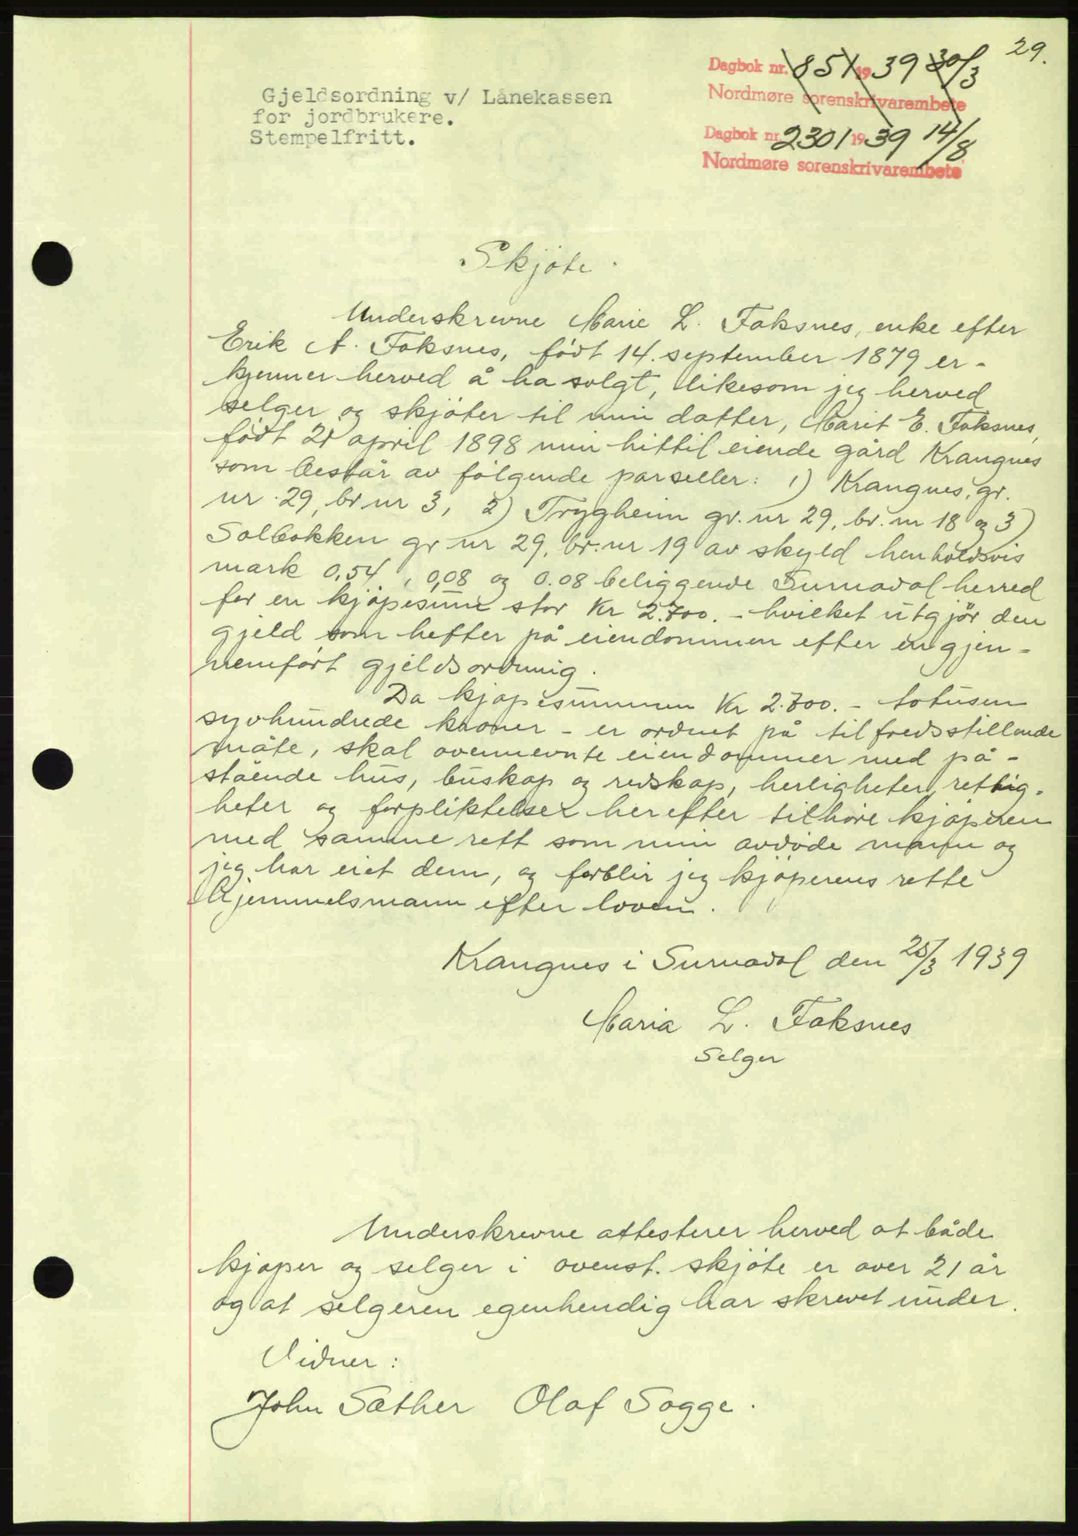 29.
Dagbok nr. 851 1939 30/3
Nordmøre sorenskrivarembete
Gjeldsordning v/ Lånekassen
for jordbrukere.
Stempelfritt.
Dagbok nr. 2301 1939 14/8
Nordmøre sorenskrivarembete
Skjøte.
Underskrevne Marie L. Faksnes, enke efter
Erik A. Faksnes, født 14. september 1879 er-
kjenner herved å ha solgt, likesom jeg herved
selger og skjøter til min datter, Marit E. Faksnes,
født april 1898 min hittil eiende gård Krangnes
som består av følgende parseller: 1) Krangnes, gr.
nr. 29, br. nr 3, 2) Trygheim gr. nr 29, br. nr 18 og 3)
Solbakken gr nr 29, br. nr 19 av skyld henholdsvis
mark 0,54, 0,08 og 0.08 beliggende Surnadal herred
for en kjøpesum stor Kr 2.700.- hvilket utgjør den
gjeld som hefter på eiendommen efter en gjen-
nemført gjeldsordning.
Da kjøpesummen Kr 2.700.- totusen
syvhundrede kroner - er ordnet på tilfredsstillende
måte, skal ovennevnte eiendommer med på-
stående hus, buskap og redskap, herligheter, rettig-
heter og forpliktelser herefter tilhøre kjøperen
med samme rett som min avdøde mann og
jeg har eiet dem, og forblir jeg kjøperens rette
hjemmelsmann efter loven.
Krangnes i Surnadal den 25/3 1939
Maria L. Faksnes
Selger
Underskrevne attesterer herved at både
kjøper og selger i ovenst. skjøte er over 21 år
og at selgeren egenhendig har skrevet under.
Vidner:
John Sæther Olaf Sogge.